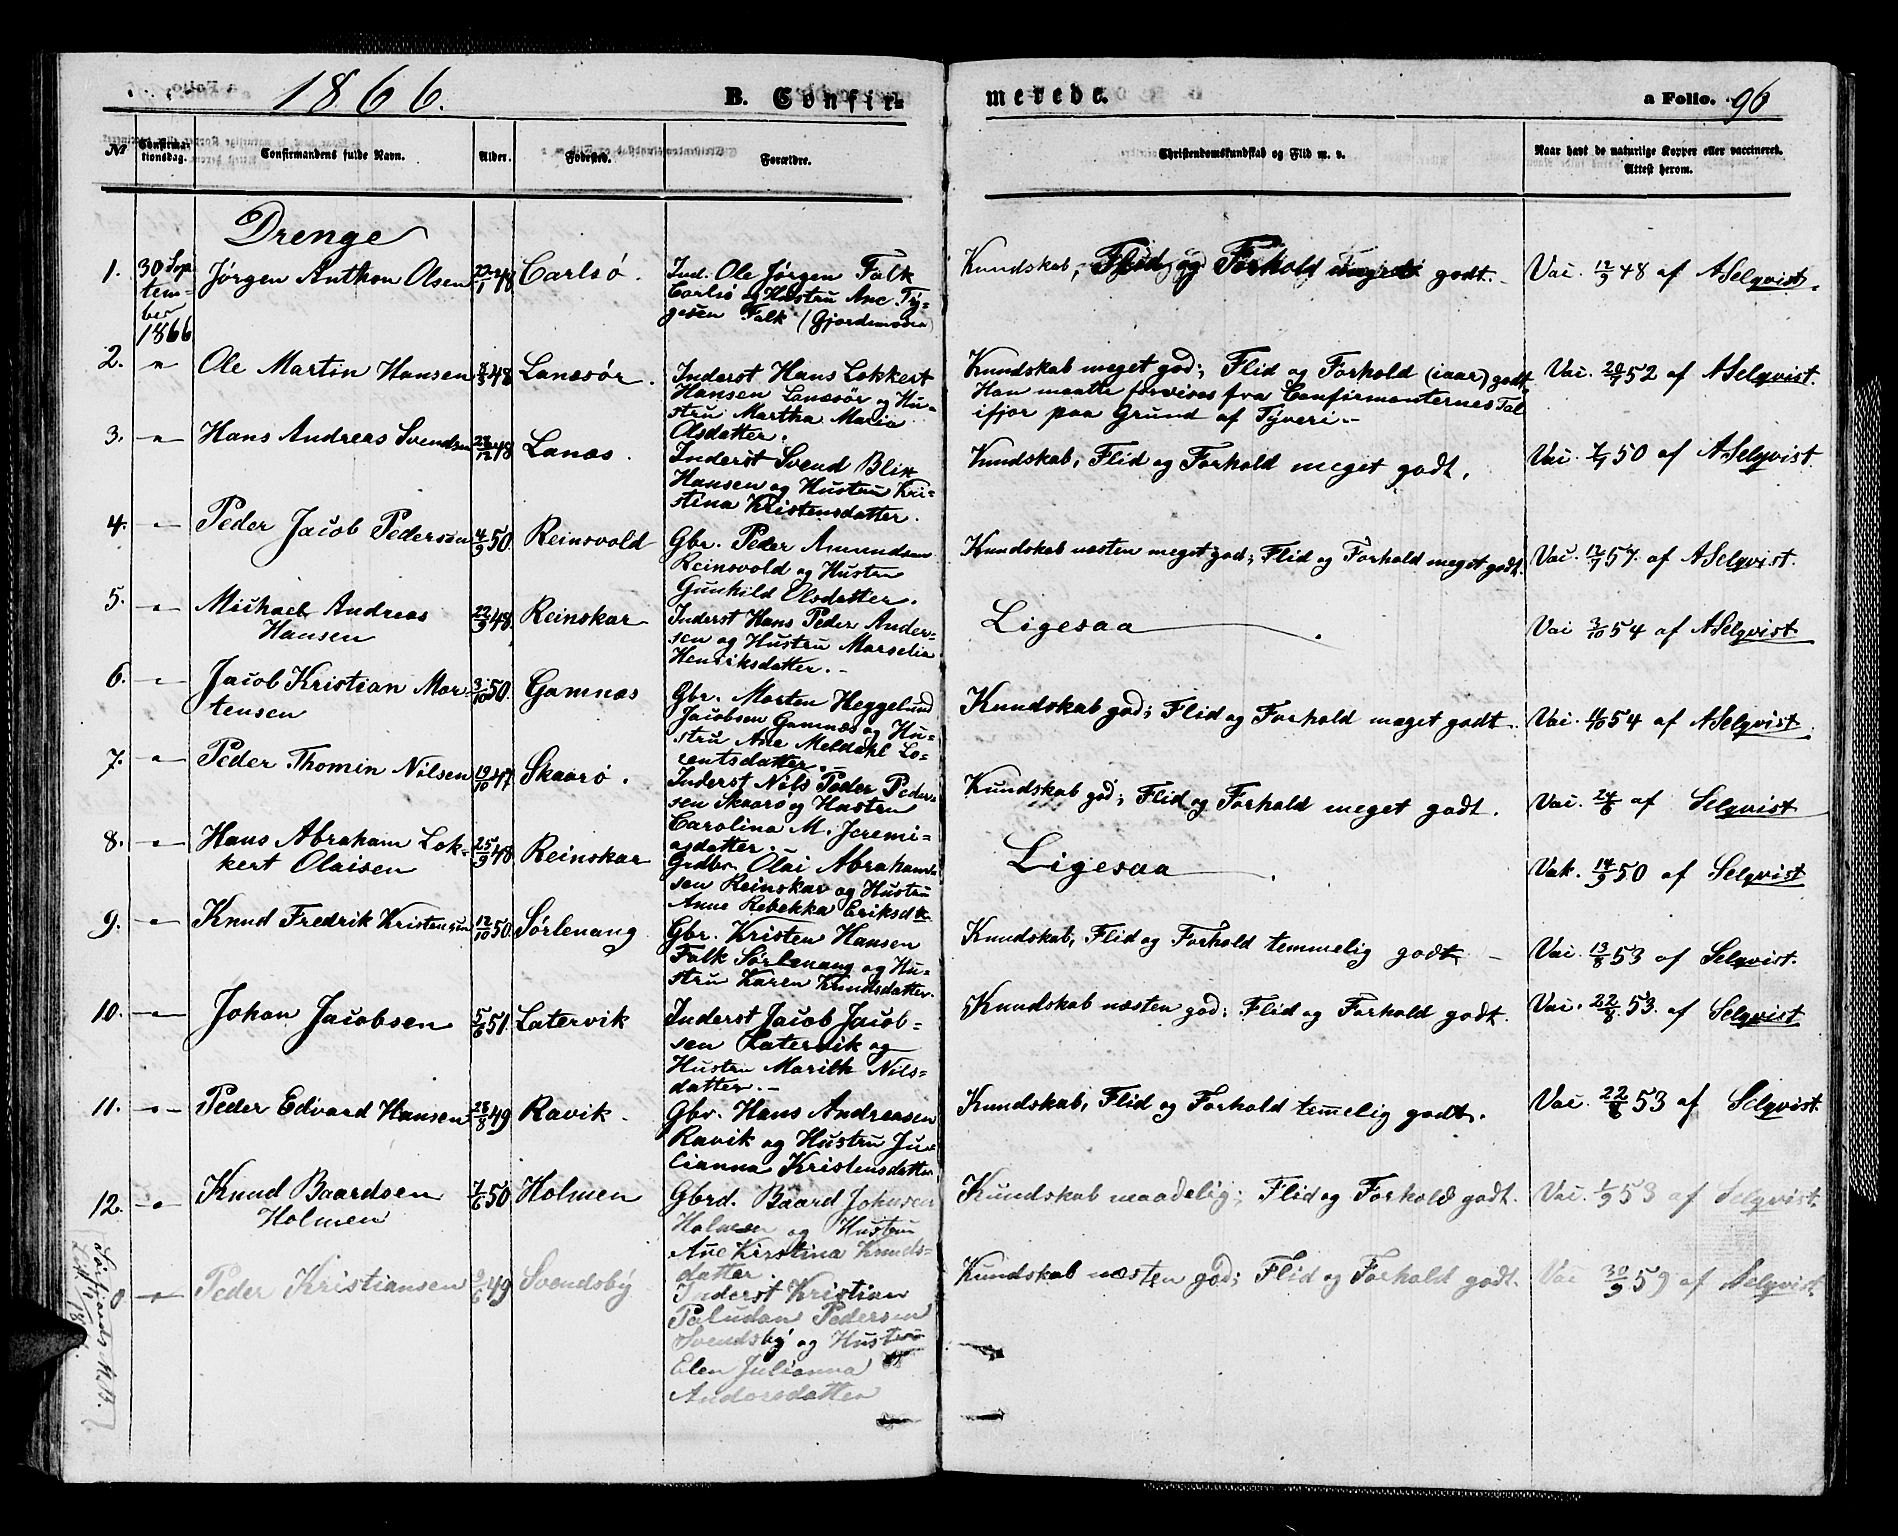 1866. B. Confir- merede. a Folio. 96
№ Confirmationsdag. Confirmandens fulde Navn. Alder. Fødested. Forældre. Christendomskundskab og Flid m. v. Naar havt de naturlige Kopper eller vaccineret. Attest herom.
Drenge
1. 30 Sep- Jørgen Anthon Olsen 22/1 48 Carlsø. Ind. Ole Jørgen Falk Kundskab, Flid og Forhold godt. Vac. 12/9 48 af ASelqvist.
tem- Carlsø og Hustru Ane Ty-
ber gesen Falk (Gjordemoder)
1866
2. " Ole Martin Hansen 48 Lanæsør. Inderst Hans Lokkert Kundskab meget god; Flid og Forhold (iaar) godt Vac. 20/7 52 af ASelqvist.
Hansen Lanæsør og Hu- Han maatte forvises fra Confirmanternes Tal
stru Martha Maria ifjor paa Grund af Tyveri.-
Olsdatter.
3. " Hans Andreas Svendsen 28/12 48 Lanæs. Inderst Svend Blix Kundskab, Flid og Forhold meget godt. Vac. 50 af ASelqvist.
Hansen og Hustru Kri-
stina Kristensdatter.
4. " Peder Jacob Pedersen 4/9 50. Reinsvold Gbr. Peder Amundsen Kundskab næsten meget god; Flid og Forhold meget godt. Vac. 12/7 57. af ASelqvist.
Reinsvold og Hustru
Gunhild Olsdatter.
5. " Michael Andreas 22/9 48. Reinskar Inderst Hans Peder Ander- Ligesaa Vac 3/10 54 af ASelqvist
Hansen sen og Hustru Marselia
Henriksdatter.-
6. " Jacob Kristian Mor- 3/10 50. Gamnæs Gbr. Morten Heggelund Kundskab god; Flid og Forhold meget godt. Vac. 54 af ASelqvist.
tensen Jacobsen Gamnæs og Hu-
stru Ane Meldahl Lo-
rentsdatter.-
7. " Peder Thomin Nilsen 19/10 47 Skaarø. Inderst Nils Peder Peder- Kundskab god; Flid og Forhold meget godt. Vac. 24/8 af Selqvist
sen Skaarø og Hustru
Carolina M. Jeremi-
asdatter.
8. " Hans Abraham Lok- 25/9 48 Reinskar Grdbr. Olai Abraham- Ligesaa Vak. 14/9 50 af Selqvist
kert Olaisen sen Reinskar og Hustru
Anne Rebekka Eriksdtr.
9. " Knud Fredrik Kristensen 12/10 50 Sørlenang Gbr. Kristen Hansen Kundskab, Flid og Forhold temmelig godt - Vac. 13/8 53 af Selqvist.
Falk Sørlenang og Hu-
stru Karen Knudsdatter.
10. " Johan Jacobsen 5/6 51 Latervik Inderst Jacob Jacob- Kundskab næsten god; Flid og Forhold godt. Vac. 22/8 53. af Selqvist
sen Latervik og
Hustru Marith Nils-
datter.-
11. " Peder Edvard Hansen 28/8 49 Ravik. Gbr. Hans Andreasen Kundskab, Flid og Forhold temelig godt. Vac. 22/8 53 af Selqvist.
Ravik og Hustru Ju-
lianna Kristensdatter
12. " Knud Baardsen 7/6 50 Holmen Gbrd. Baard Johnsen Kundskab maadelig; Flid og Forhold godt. Vac. 1/9 53 af Selqvist.
Holmen Holmen og Hustru
Ane Kirstina Knuds-
datter.
" Peder Kristiansen 49 Svendsby Inderst Kristian Kundskab næsten god; Flid og Forhold godt. Vac 30/9 59 af ASelqvist.
Paludan Pedersen
Svendsby og Hustru
Elen Julianna
Andorsdatter